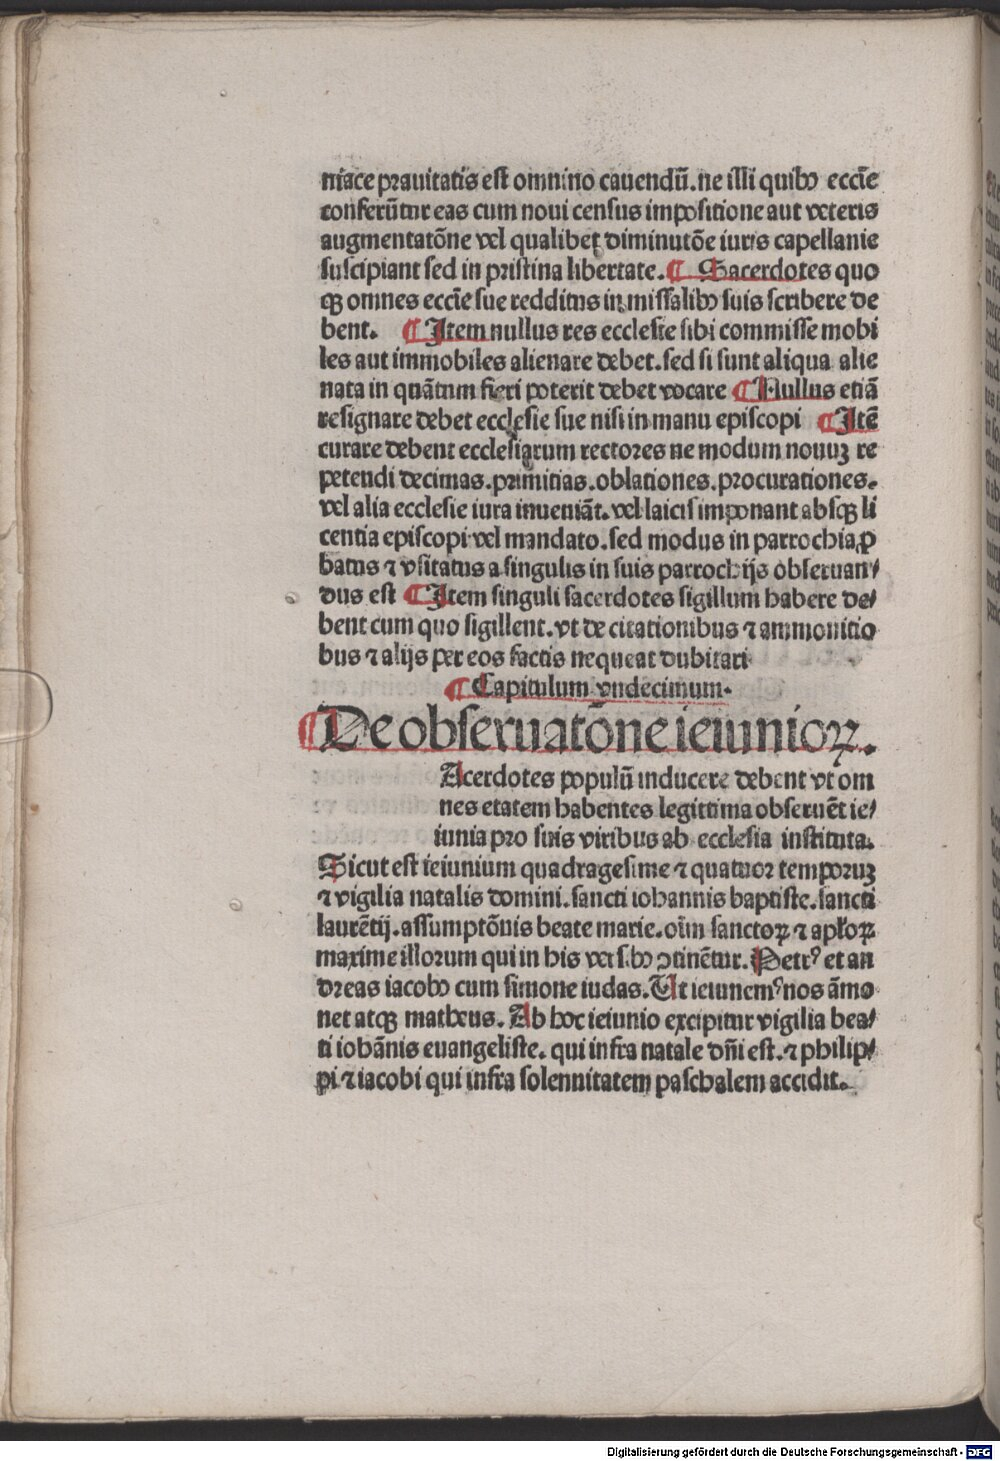 niace prauitatis est omnino cauendū. ne illi quibꝰ eccīe
conferūtur eas cum noui census impositione aut veteris
augmentatōne vel qualibet diminutōe iuris capellanie
suscipiant sed in pristina libertate. ¶ Sacerdotes quo
qꝫ omnes eccīe sue redditus in missalibꝰ suis scribere de
bent. ¶ Item nullus res ecclesie sibi commisse mobi
les aut immobiles alienare debet. sed si sunt aliqua alie
nata in quātum fieri poterit debet vocare ¶ Nullus etiā
resignare debet ecclesie sue nisi in manu episcopi ¶ Itē
curare debent ecclesiarum rectores ne modum nouuꝫ re
petendi decimas. primitias. oblationes. procurationes.
vel alia ecclesie iura inueniāt. vel laicis imponant absqꝫ li
centia episcopi vel mandato. sed modus in parrochia ꝓ
batus ⁊ vsitatus a singulis in suis parrochijs obseruan/
dus est ¶ Item singuli sacerdotes sigillum habere de/
bent cum quo sigillent. vt de citationibus ⁊ ammonitio
bus ⁊ alijs per eos factis nequeat dubitari
¶ Capitulum vndecimum.
¶ De obseruatōne ieiunioꝝ.
Acerdotes populū inducere debent vt om
nes etatem habentes legittima obseruēt ie/
iunia pro suis viribus ab ecclesia instituta.
Sicut est ieiunium quadragesime ⁊ quatuor temporuꝫ
⁊ vigilia natalis domini. sancti iohannis baptiste. sancti
laurētij. assumptōnis beate marie. oīm sanctoꝝ ⁊ apłoꝝ
maxime illorum qui in his versibꝰ ↄtinētur. Petrꝰ et an
dreas iacobꝰ cum simone iudas. Ut ieiunemꝰ nos āmo
net atqꝫ matheus. Ab hoc ieiunio excipitur vigilia bea/
ti iohānis euangeliste. qui infra natale dn̄i est. ⁊ philip/
pi ⁊ iacobi qui infra solennitatem paschalem accidit.
Digitalisierung gefördert durch die Deutsche Forschungsgemeinschaft - DFG